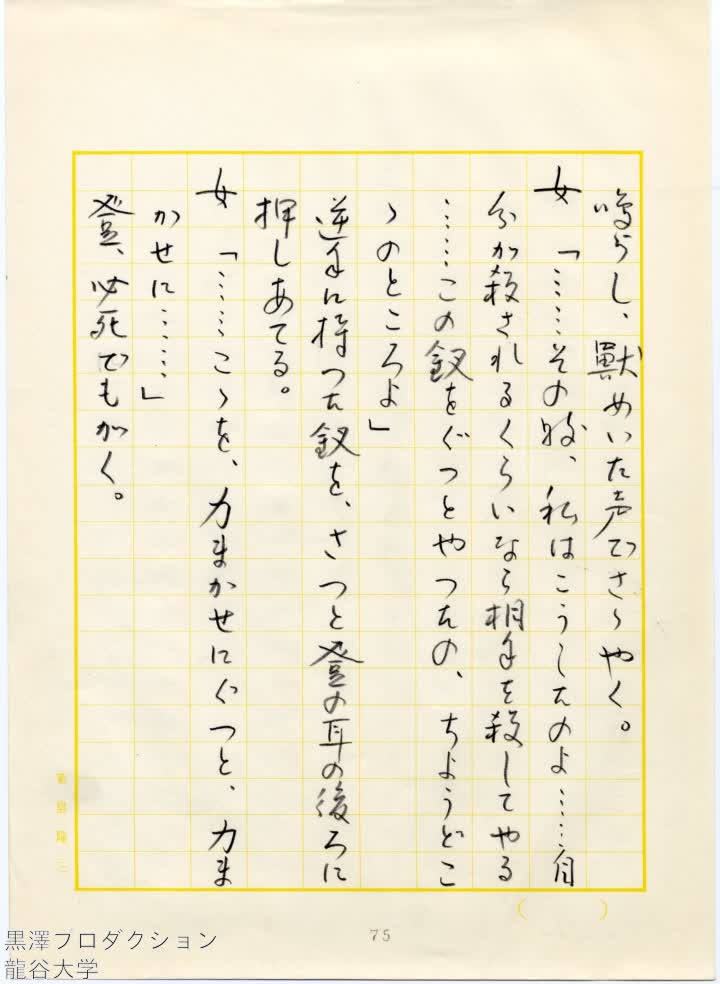 鳴らし、獣めいた声でさゝやく。
女「……その時、私はこうしたのよ……自
分が殺されるくらいなら相手を殺してやる
……この釵をぐつとやつたの、ちようどこ
ゝのところよ」
逆手に持つた釵を、さつと登の耳の後ろに
押しあてる。
女「……こゝを、力まかせにぐつと、力ま
かせに……」
登、必死でもがく。
75
黒澤プロダクション
龍谷大学